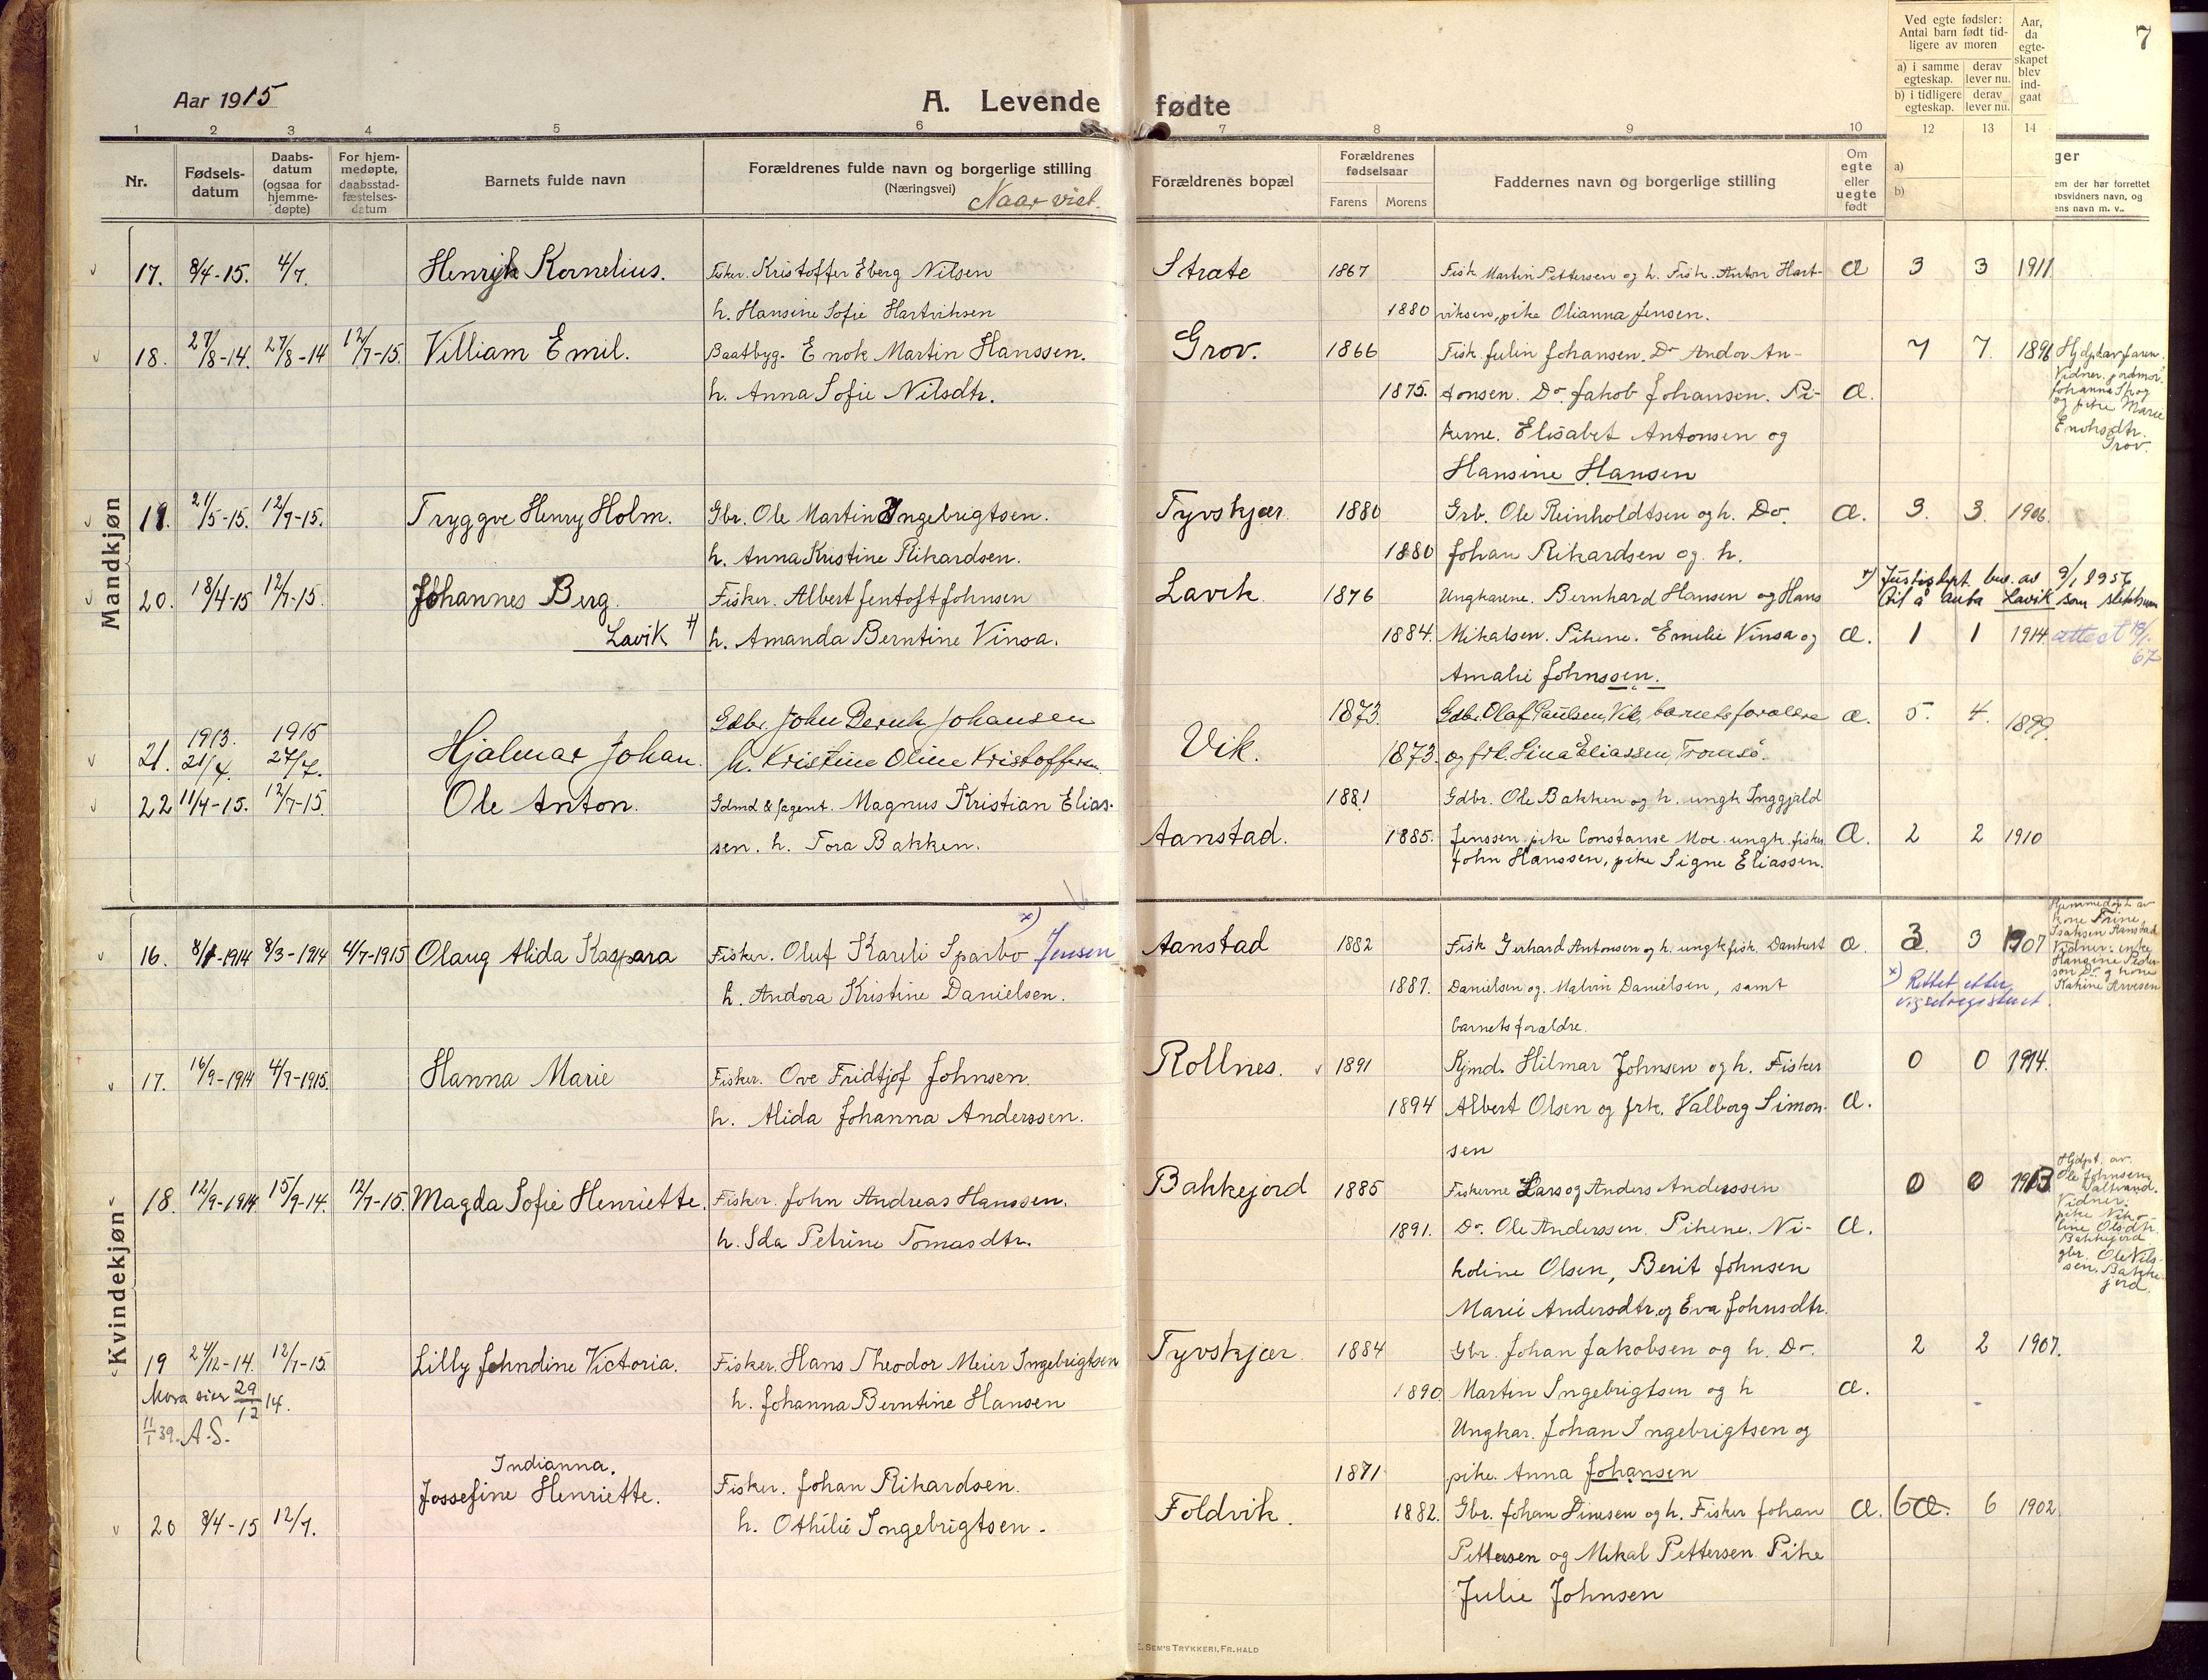 Aar 1915
A. Levende fødte
7
1 2 3 4 5 6 7 8 9 10 12 13 14
Nr.
Fødsels-datum
Daabs-datum (ogsaa for hjemme-døpte)
For hjem-medøpte, daabsstad-fæstelses-datum
Barnets fulde navn
Forældrenes fulde navn og borgerlige stilling
(Næringsvei)
Naar viet.
Forældrenes bopæl
Forældrenes fødselsaar
Farens Morens
Faddernes navn og borgerlige stilling
Om egte eller uegte født
Ved egte fødsler: Antal barn født tid-ligere av moren
a) i samme egteskap. derav lever nu.
b) i tidligere egteskap. derav lever nu.
Aar, da egte-skapet blev ind-gaat
a)
b)
ger
em der har forrettet
absvidners navn, og
ens navn m. v..
Mandkjøn
17. 8/4-15. 4/7. Henryk Kornelius. Fisker. Kristoffer Eberg Nilsen Strate 1867 Fisk Martin Pettersen og h. Fisk. Anton Hart- Æ 3 3 1911
h. Hansine Sofie Hartviksen 1880 viksen, pike Olianna Jensen.
18. 27/8-14. 27/8-14 12/7-15. Villiam Emil. Baatbyg. Enok Martin Hanssen. Grov. 1866 Fisk. Julin Johansen. Do Andor An- 7 7. 1896 Hjdpt av faren.
h. Anna Sofie Nilsdtr. 1875. tonsen. Do. Jakob Johansen. Pi- Æ. Vidner. jordmor. Johanna Skog
kerne. Elisabet Antonsen og og pike Marie
Hansine Hansen Enoksdtr. Grov.
19. 21/5-15. 12/9-15. Tryggve Henry Holm. Gbr. Ole Martin Ingebrigtsen. Tyvskjær 1880 Grb. Ole Reinholdtsen og h. Do. Æ. 3. 3. 1906.
h. Anna Kristine Rikardsen. 1880 Johan Rikardsen og. h.
20. 18/4-15 12/7-15. Johannes Berg. Fisker. Albert Jentoft Johnsen Lavik 1876 Ungkarene. Bernhard Hansen og Hans x) Justisdept. bev. av 9/1 1956
Lavik x) h. Amanda Berntine Vinsa. 1884. Mikalsen. Pikene. Emilie Vinsa og Æ. til å anta Lavik som slektsnavn
Amalie Johnssen. 1 1 1914 attest 19/1-67
21. 1913. 21/4. 1915 27/7. Hjalmar Johan. Gdbr. John Bernh. Johansen Vik. 1873 Gdbr. Olaf Paulsen, Vik, barnets forældre Æ. 5. 4. 1899.
h. Kristine Oline Kristoffersen. 1873. og frk. Lina Eliassen, Tromsø.
22 11/4-15. 12/7-15. Ole Anton. Gdmd & agent. Magnus Kristian Elias- 1881 Gdbr. Ole Bakken og h. ungk Inggjald
sen. h. Tora Bakken. Aanstad. 1885. Jenssen. pike Constanse Moe. ungk. fisker Æ. 2 2 1910
John Hanssen, pike Signe Eliassen.
Kvindekjøn
16. 8/1-1914 8/3-1914 4/7-1915 Olaug Alida Kaspara Fisker. Oluf Kareli Sparbo x) Jensen Aanstad 1882 Fisk Gerhard Antonsen og h. ungk fisk. Dankert Æ. 3 3 1907 Hjemmedøpt av kone Trine Isaksen Aanstad
h. Andora Kristine Danielsen. 1887. Danielsen og. Malvin Danielsen, samt x) Rettet etter vigselregisteret. Vidner: enke Hansine Peder-sen Do og kone
barnets forældre. Katrine Arvesen
17. 16/9-1914 4/7-1915. Hanna Marie Fisker. Ove Fridtjof Johnsen. Rollnes. 1891 Kjmd. Hilmar Johnsen og h. Fisker 0 0 1914.
h. Alida Johanna Anderssen. 1894 Albert Olsen og frk. Valborg Simon- Æ.
sen
18. 12/9-1914 15/9-14. 12/7-15. Magda Sofie Henriette. Fisker. John Andreas Hanssen. Bakkejord 1885 Fiskerne Lars og Anders Anderssen 0 0 1913 Hjdpt. av Ole Johnsen, Saltvand.
h. Ida Petrine Tomasdtr. 1891. Do. Ole Anderssen. Pikene. Ni- Æ. Vidner: pike Niko-line Olsdtr
koline Olsen, Berit Johnsen Bakkejord
Marie Andersdtr. og Eva Johnsdtr. gbr. Ole Nils-sen. Bakke-jord.
19 24/12-14. 12/7-15 Lilly Johndine Victoria. Fisker. Hans Theodor Meier Ingebrigtsen Tyvskjær. 1884 Gbr. Johan Jakobsen og h. Do. 2 2 1907.
Mora sier 29/12 14. h. Johanna Berntine Hansen 1890. Martin Ingebrigtsen og h Æ.
11/1 39. A.S. Ungkar. Johan Ingebrigtsen og
pike. Anna Johansen
Indianna.
20 8/4-15 12/7. Jossefine Henriette. Fisker. Johan Rikardsen. Foldvik. 1871
h. Othilie Ingebrigtsen. 1882. Gbr. Johan Dinesen og h. Fisker Johan Æ. 6 6 1902
Pettersen og Mikal Pettersen Pike
Julie Johnsen
E. SEM'S TRYKKERI, FR. HALD